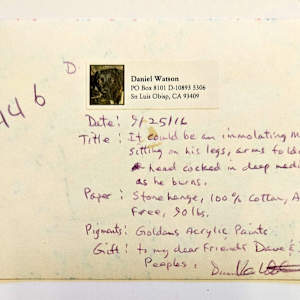 D
446
Daniel Watson
PO Box 8101 D-10893 3306
Sn Luis Obisp, CA 93409
Date: 9/25/16
Title: It could be an immolating
sitting on his legs, arms folde
head cocked in deep med
as he burns.
Paper: Stonehenge, 100% Cotton, A
Free, 90 lbs.
Pigments: Goldens Acrylic Paints
Gift: to my dear friends Dave E
Peoples,